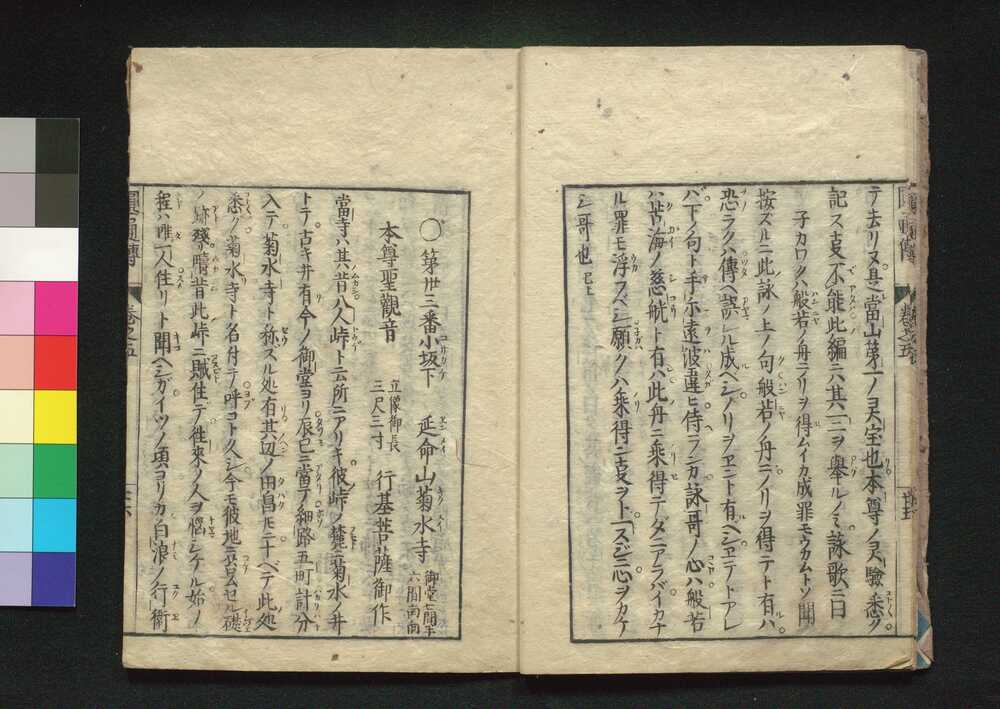 テ去リヌ是レ當山第一ノ灵宝也本尊ノ灵驗悉ク
記スヿ不能此編ニ六其一二ヲ舉ルノミ詠歌ニ曰
子カワクハ般若ノ舟ニノリヲ得ムイカ成罪モウカムトソ聞
按ズルニ此詠ノ上ノ句般若ノ舟ニノリヲ得テト有ハ
恐ラクハ傳ヘ誤レル成ヘシノリヲヱニト有ルヘシヱテトアレ
バ下ノ句ト手尓遠波違ヒ侍ラシカ詠哥ノ心ハ般若
ハ苦海ノ慈航ト有ハ此舟ニ乘得テダニアラバイカナ
ル罪モ浮フベシ願クハ乘得ニヿヲト一スジニ心ヲカケ
シ哥也
已上
〇第卅三番小坂下 延命山菊水寺
御堂七間半
六間南向
本尊聖觀音
立像御長
三尺三寸
行基菩薩御作
當寺ハ其昔八人峠ト云所ニアリキ彼峠ノ麓ニ菊水ノ井
トテ古キ井有今ノ御堂ヨリ辰巳ニ當テ細路五町計分
入テ菊水寺ト称スル処有其辺ノ田畠凡ニ十ベテ此処
悉ク菊水寺ト名付テ呼コト久シ今モ彼地ニ云ウズムセル礎
ノ跡殘リ晴昔此峠ニ賊住テ徃來ノ人ヲ悩シケル始ノ
程ハ唯一人住リト聞ヘシガイツノ頃ヨリカ白浪ノ行衛
圓通傳
卷之五